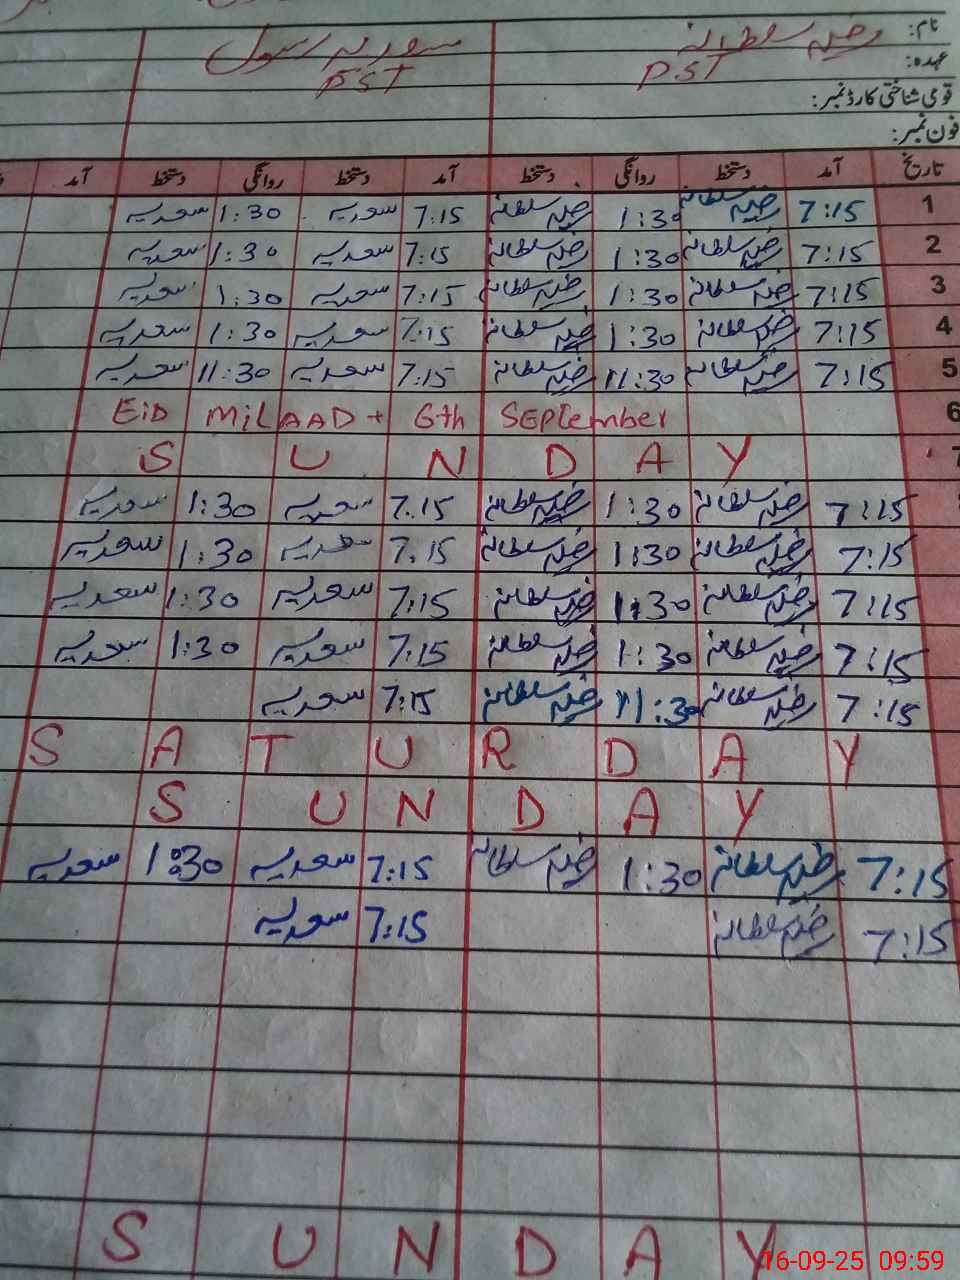 نام: رضیہ سلطانہ سعدیہ رسول
عہدہ: PST PST
قومی شناختی کارڈ نمبر:
فون نمبر:
تاریخ آمد دستخط روانگی دستخط آمد دستخط روانگی دستخط آمد
1 7:15 رضیہ سلطانہ 1:30 رضیہ سلطانہ 7:15 سعدیہ 1:30 سعدیہ
2 7:15 رضیہ سلطانہ 1:30 رضیہ سلطانہ 7:15 سعدیہ 1:30 سعدیہ
3 7:15 رضیہ سلطانہ 1:30 رضیہ سلطانہ 7:15 سعدیہ 1:30 سعدیہ
4 7:15 رضیہ سلطانہ 1:30 رضیہ سلطانہ 7:15 سعدیہ 1:30 سعدیہ
5 7:15 رضیہ سلطانہ 11:30 رضیہ سلطانہ 7:15 سعدیہ 11:30 سعدیہ
EiD MiLAAD + 6th SEPtember 6
SUNDAY 7
7:15 رضیہ سلطانہ 1:30 رضیہ سلطانہ 7:15 سعدیہ 1:30 سعدیہ
7:15 رضیہ سلطانہ 1:30 رضیہ سلطانہ 7:15 سعدیہ 1:30 سعدیہ
7:15 رضیہ سلطانہ 1:30 رضیہ سلطانہ 7:15 سعدیہ 1:30 سعدیہ
7:15 رضیہ سلطانہ 1:30 رضیہ سلطانہ 7:15 سعدیہ 1:30 سعدیہ
7:15 رضیہ سلطانہ 11:30 رضیہ سلطانہ 7:15 سعدیہ
SATURDAY
SUNDAY
7:15 رضیہ سلطانہ 1:30 رضیہ سلطانہ 7:15 سعدیہ 1:30 سعدیہ
7:15 رضیہ سلطانہ 7:15 سعدیہ
SUNDAY
16-09-25 09:59